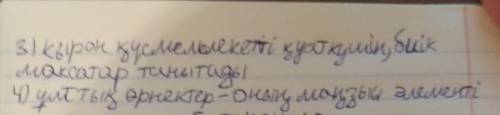 3) қыран құсмемлекетті қуаткүшін, биік
мақсатар танытады
4) ұлттық өрнектер – оның маңзңы элементі